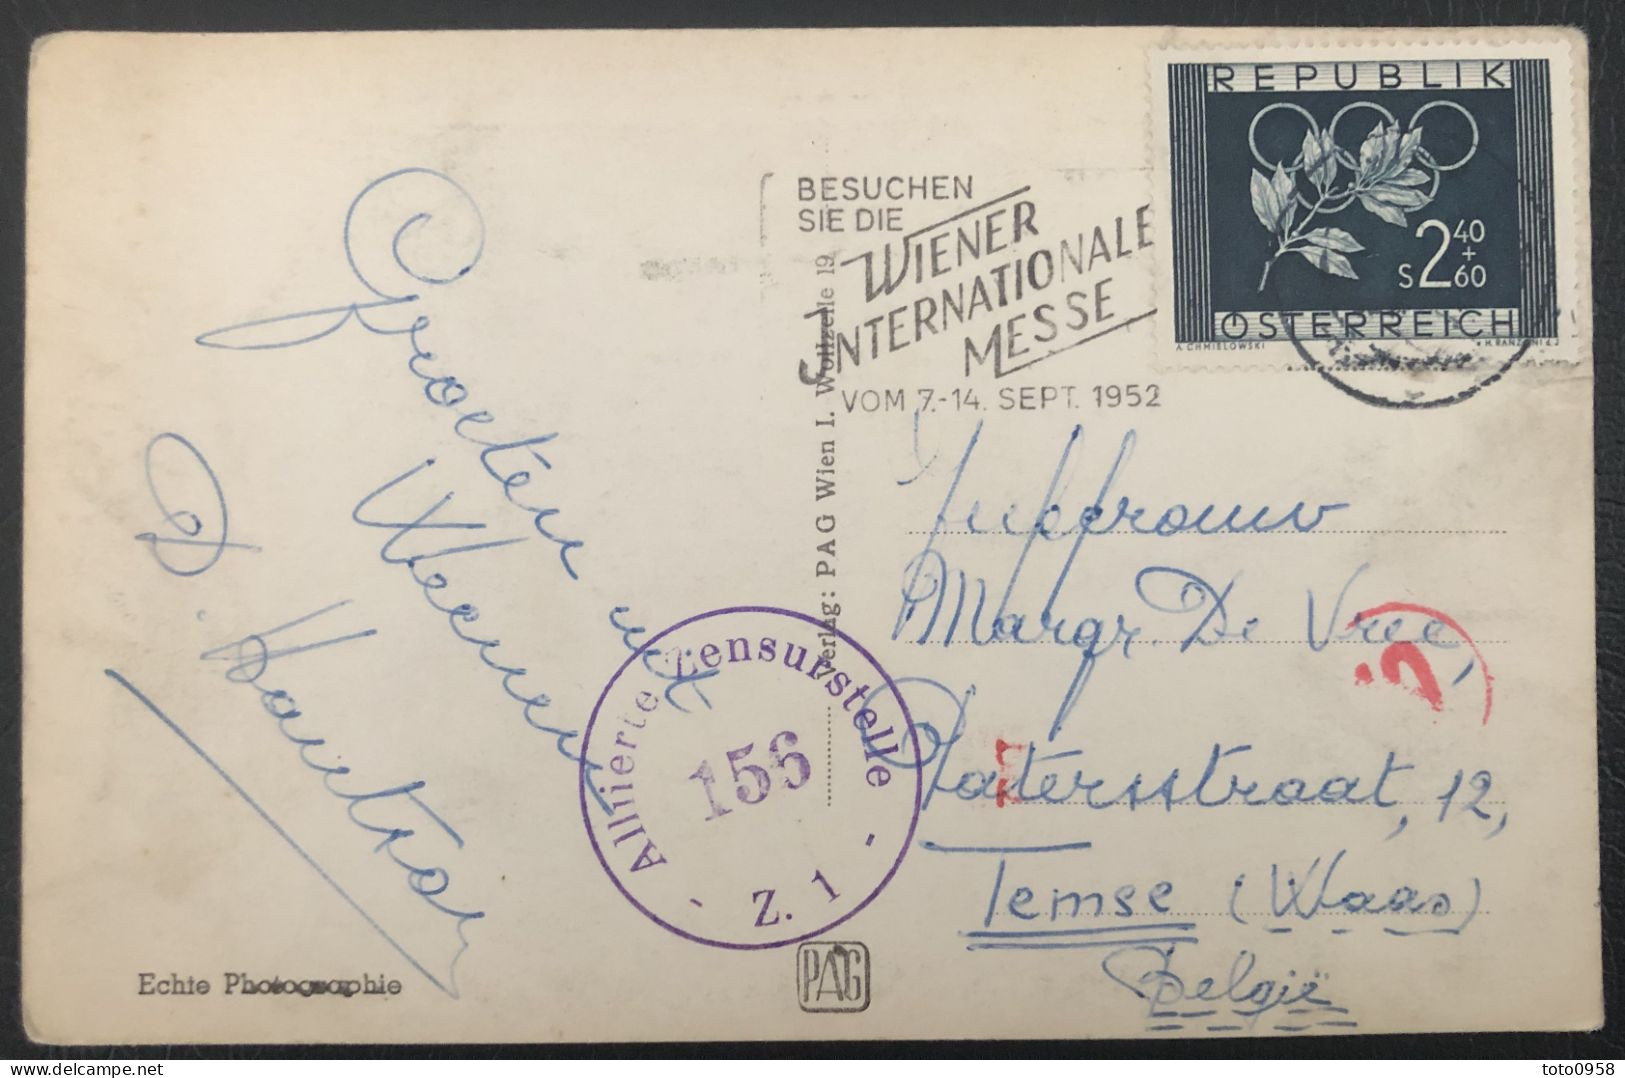 REPUBLIK
S 2 40 + 60
ÖSTERREICH
A. CHMIELOWSKI
BESUCHEN
SIE DIE
WIENER
INTERNATIONALE
MESSE
VOM 7.-14. SEPT. 1952
Groeten uit
Weenen
D.
Verlag: PAG Wien I. Wollzeile 19
Juffrouw
Margr. De Vree,
Platersstraat, 12,
Temse (Waas)
België
Alliierte Zensurstelle
156
- Z. 1 -
Echte Photographie
PAG
toto0958